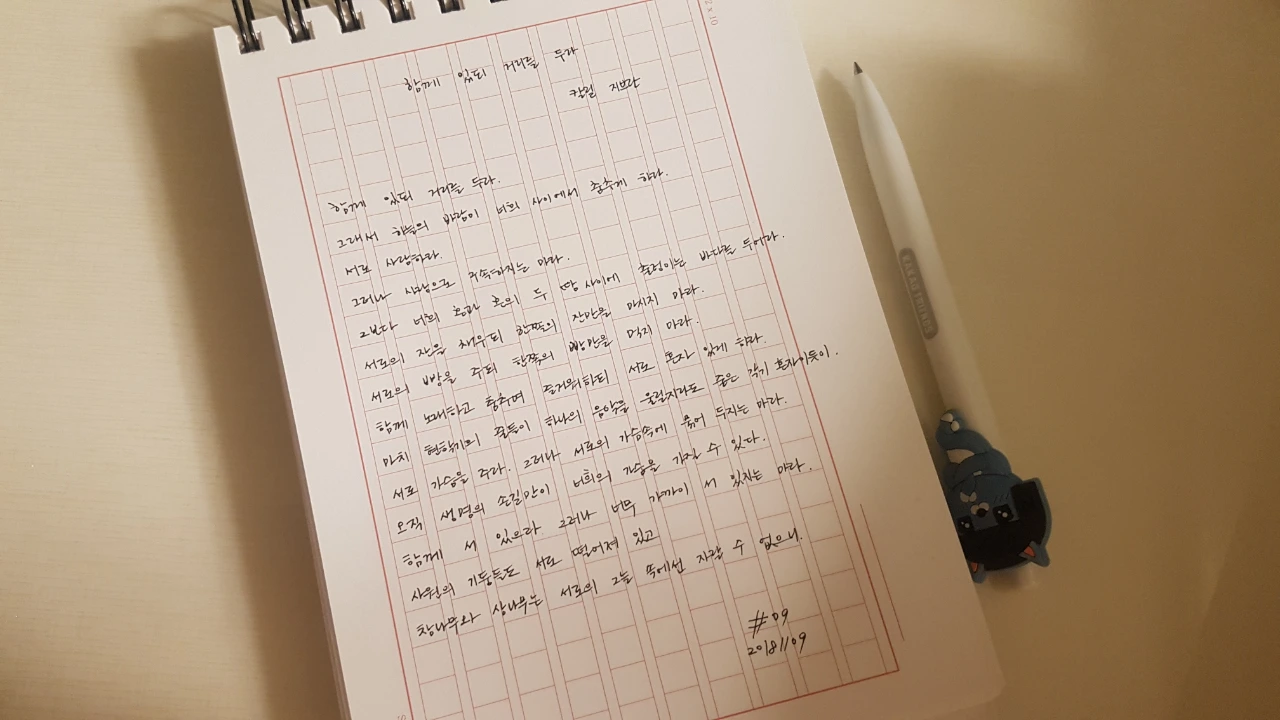 함께 있되 거리를 두라
칼릴 지브란
함께 있되 거리를 두라.
그래서 하늘의 바람이 너희 사이에서 춤추게 하라.
서로 사랑하라.
그러나 사랑으로 구속하지는 마라.
그보다 너희 혼과 혼의 두 땅 사이에 출렁이는 바다를 두어라.
서로의 잔을 채우되 한쪽의 잔만을 마시지 마라.
서로의 빵을 주되 한쪽의 빵만을 먹지 마라.
함께 노래하고 춤추며 즐거워하되 서로 혼자 있게 하라.
마치 현악기의 줄들이 하나의 음악을 울릴지라도 줄은 각기 혼자이듯이.
서로 가슴을 주라. 그러나 서로의 가슴속에 묶어 두지는 마라.
오직 생명의 손길만이 너희의 가슴을 가질 수 있다.
함께 서 있으라 그러나 너무 가까이 서 있지는 마라.
사원의 기둥들도 서로 떨어져 있고
참나무와 삼나무는 서로의 그늘 속에선 자랄 수 없으니.
#09
20181109
KAKAO FRIENDS